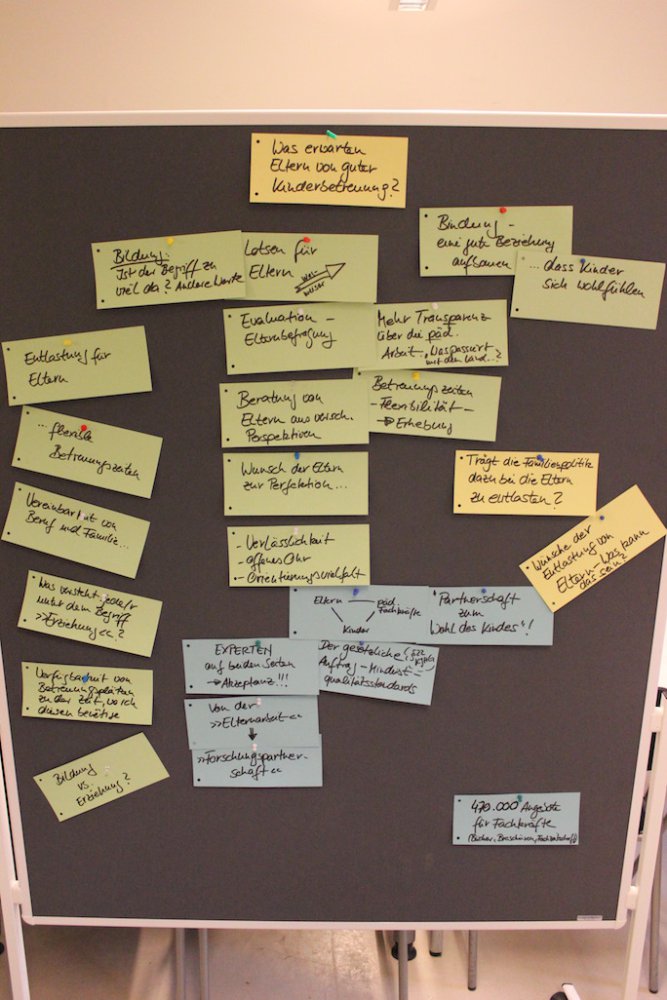 Was erwarten
Eltern von guter
Kinderbetreuung?
Bildung:
Ist der Begriff zu
viel da? Andere Worte
Lotsen für
Eltern
Weg-
weiser
Bindung -
eine gute Beziehung
aufbauen
... dass Kinder
sich wohlfühlen
Evaluation -
Elternbefragung
Mehr Transparenz
über die päd.
Arbeit. "Was passiert
mit den
Entlastung für
Eltern
Beratung von
Eltern aus versch.
Perspektiven
Betreuungszeiten
- Flexibilität -
→ Erhebung
... flexible
Betreuungszeiten
Wunsch der Eltern
zur Perfektion...
Trägt die Familienpolitik
dazu bei die Eltern
zu entlasten?
Vereinbarkeit von
Beruf und Familie...
- Verlässlichkeit
- offenes Ohr
- Orientierungsvielfalt
Wünsche der
Entlastung von
Eltern - Was kann
das sein?
Was versteht jede/r
unter dem Begriff
>>Erziehung<<?
Eltern
päd.
Fachkräfte
Kinder
"Partnerschaft
zum
Wohl des Kindes"!
EXPERTEN
auf beiden Seiten
→ Akzeptanz!!!
Der gesetzliche
Auftrag - Mindest-
qualitätsstandards
Verfügbarkeit von
Betreuungsplätzen
zu der Zeit, wo ich
diesen benötige
Von der
>>Elternarbeit<<
>>Forschungspartner-
schaft<<
Bildung
vs.
Erziehung?
470.000 Angebote
für Fachkräfte
(Bücher, Broschüren,